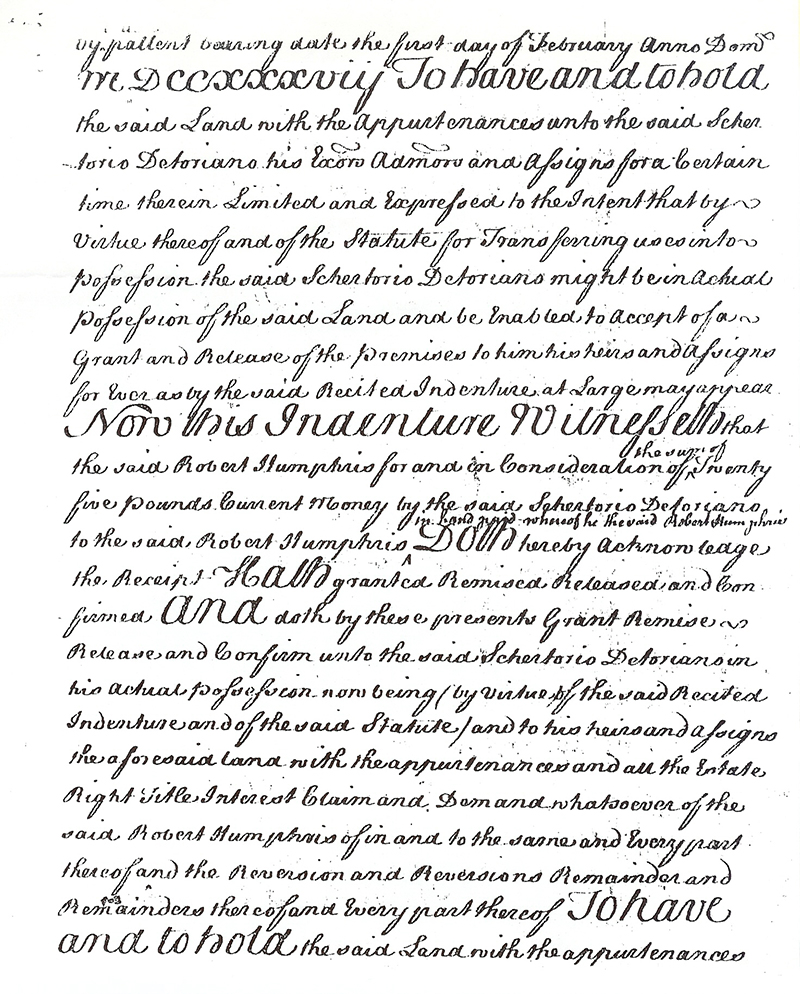 by pattent bearing date the first day of February Anno Dom̃
MDCCXXXXViij To have and to hold
the said Land with the Appurtenances unto the said Scher
torio Detoriano his Exõrs Admõrs and Assigns for a Certain
time therein Limited and Expressed to the Intent that by
Virtue thereof and of the Statute for Transferring uses into
Possession the said Schertorio Detoriano might be in Actual
Possession of the said Land and be Enabled to Accept of a
Grant and Release of the Premises to him his heirs and Assigns
for Ever as by the said Recited Indenture at Large may appear
Now this Indenture Witnesseth that
the said Robert Humphris for and in Consideration of ^ the sum of Twenty
five Pounds Current Money by the said Schertorio Detoriano
to the said Robert Humphris ^ in hand paid whereof he the said Robert Humphris Doth hereby Acknowledge
the Receipt Hath granted Remised Released and Con
firmed And doth by these presents Grant Remise
Release and Confirm unto the said Schertorio Detoriano in
his Actual Possession now being (by Virtue of the said Recited
Indenture and of the said Statute) and to his heirs and Assigns
the aforesaid land with the appurtenances and all the Estate
Right Title Interest Claim and Demand whatsoever of the
said Robert Humphris of in and to the same and Every part
thereof and the Reversion and Reversions Remainder and
Remainders thereof and Every part thereof To have
and to hold the said Land with the appurtenances